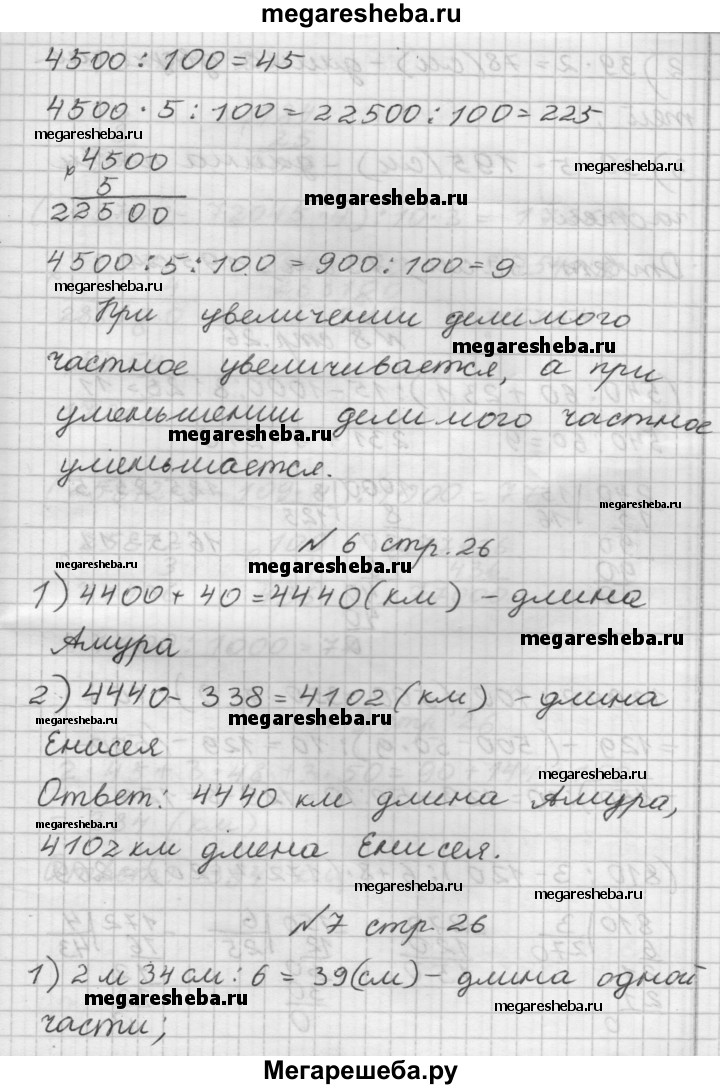 megaresheba.ru
4500 : 100 = 45
4500 · 5 : 100 = 22500 : 100 = 225
megaresheba.ru
× 4500
megaresheba.ru
5
megaresheba.ru
22500
4500 : 5 : 100 = 900 : 100 = 9
megaresheba.ru
При увеличении делимого
megaresheba.ru
частное увеличивается, а при
уменьшении делимого частное
megaresheba.ru
уменьшается.
megaresheba.ru
№ 6 стр. 26
megaresheba.ru
megaresheba.ru
1) 4400 + 40 = 4440 (км) - длина
megaresheba.ru
Амура
2) 4440 - 338 = 4102 (км) - длина
megaresheba.ru
megaresheba.ru
Енисея
megaresheba.ru
Ответ: 4440 км длина Амура,
megaresheba.ru
4102 км длина Енисея.
megaresheba.ru
megaresheba.ru
№ 7 стр. 26
1) 2 м 34 см : 6 = 39 (см) - длина одной
megaresheba.ru
megaresheba.ru
части;
Мегарешеба.ру